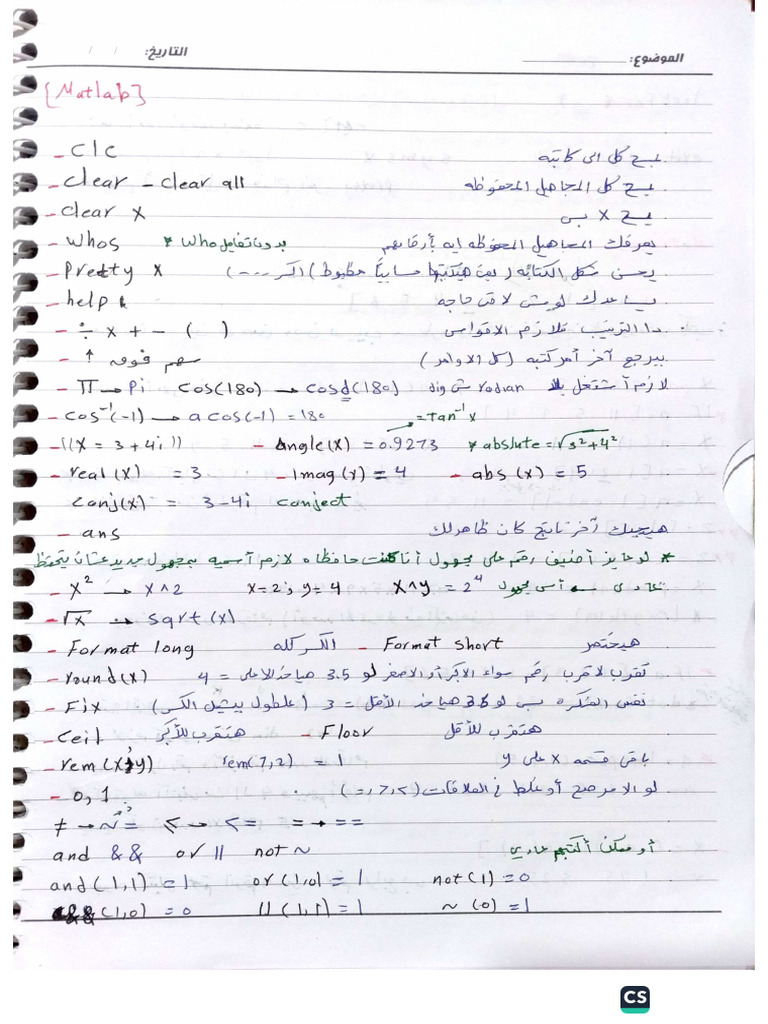 الموضوع: التاريخ: / /
{Matlab}
- clc يمسح كل الى كاتبه
- clear - clear all يمسح كل المجاهيل المحفوظه
- clear x يمسح x بس
- whos * who بدون تفاصيل يعرفك المجاهيل المحفوظه ايه بأرقامهم
- Pretty x يحسن شكل الكتابه ( يعني هيكتبها حسابياً مظبوط ) (الكسر ----)
- help يساعدك لو مش لاقى حاجه
- ÷ x + - ( ) دا الترتيب فلازم الاقواس
- ↑ سهم فوق بيرجع آخر أمر كتبته (كل الاوامر)
- π → Pi cos(180) → cosd(180) لازم أشتغل بلا dig مش radian
- cos⁻¹(-1) → acos(-1) = 180 = tan⁻¹ x
- ((x = 3 + 4i)) - Angle(x) = 0.9273 * abslute = √3²+4²
- real (x) = 3 - Imag(x) = 4 - abs (x) = 5
conj(x) = 3-4i conject
- ans هيجيبلك آخر ناتج كان ظاهرلك
* لو عايز أضيف رقم على مجهول أنا كنت حافظاه لازم أسميه بمجهول جديد عشان يتحفظ
- x² → x^2 x=2; y=4 x^y = 2⁴ أسى مجهول عادى
- √x → sqrt(x)
- Format long الكسر كله - Format short هيختصر
- round(x) تقرب لاقرب رقم سواء الاكبر أو الاصغر لو 3.5 هياخد الاعلى = 4
- Fix نفس الفكره بس لو 3.5 هياخد الأقل = 3 (علطول بيشيل الكسر)
- Ceil هتقرب للأكبر - Floor هتقرب للأقل
- rem(x,y) rem(7,2) = 1 باقى قسمه x على y
- 0,1 لو الامر صح أو غلط في العلاقات (<,>,=)
≠ → ~= ≤ → <= = → ==
and && or || not ~ أو ممكن أكتبهم عادي
and (1,1) = 1 or (1,0) = 1 not (1) = 0
&& (1,0) = 0 || (1,1) = 1 ~ (0) = 1
CS